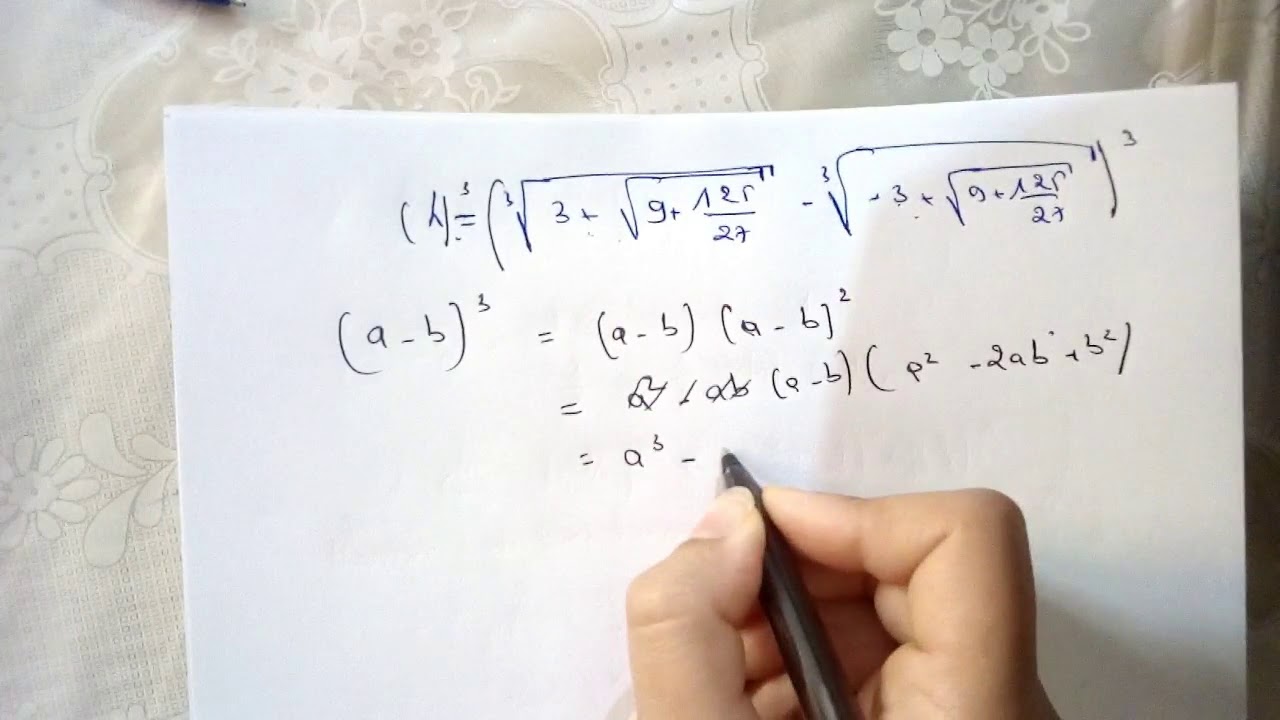 (A)³ = (∛(3 + √(9 + 125/27)) - ∛(-3 + √(9 + 125/27)))³
(a - b)³ = (a - b) (a - b)²
= (a - b) (a² - 2ab + b²)
= a³ -